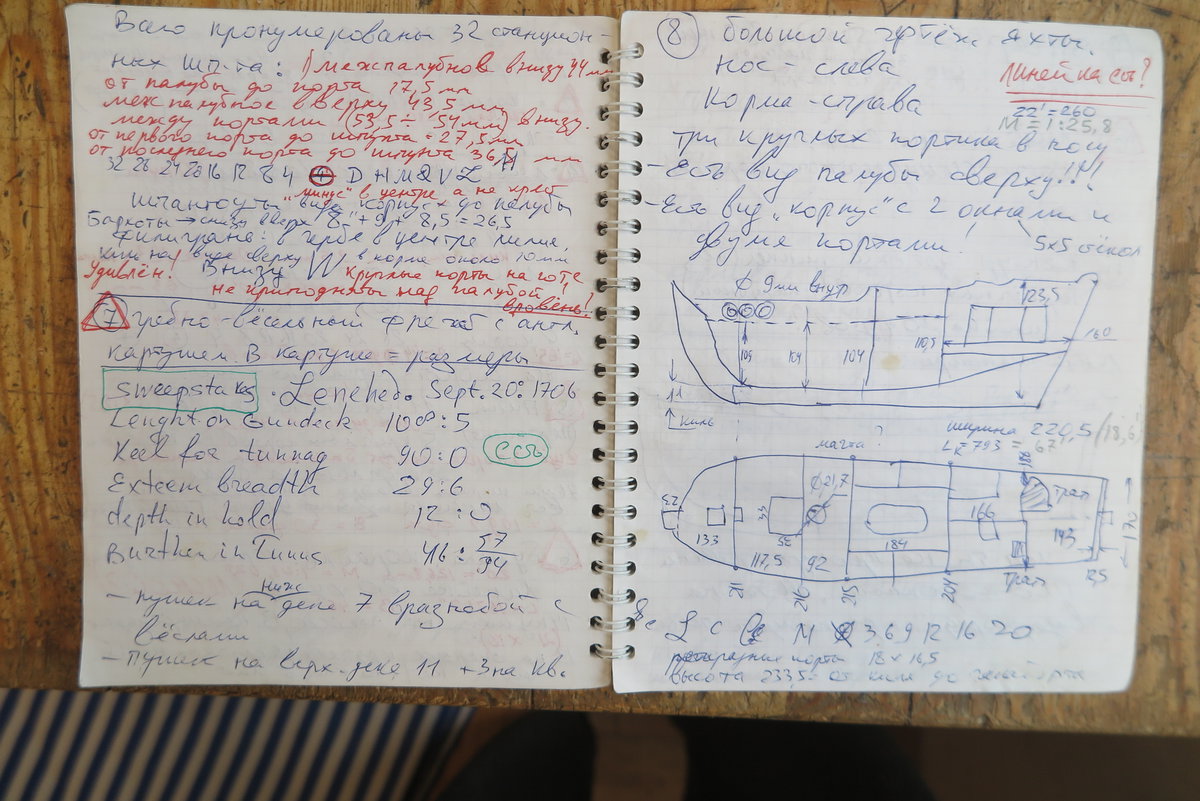 Всего пронумерованы 32 станцион-
ных шп-та: 1) межпалубнов внизу 44 мм
от палубы до порта 17,5 мм
межпалубное вверху 43,5 мм
между портами (53,5 ÷ 54 мм) внизу.
от первого порта до штунта = 27,5 мм
от последнего порта до штунта 36,5 мм
32 28 24 20 16 12 8 4 D H M Q V Z
"минус" в центре а не крест
виде корпус до палубы
Бархоты → снизу вверх 8 + 9 + 8,5 = 26,5
Филигране: в гербе в центре лилие,
виде сверху в корме около 10 мм
Удивлён! Внизу W круглые порты на юте
не приподняты над палубой,
вровень!
7 гребно-вёсельный фрегат с англ.
картушем. В картуше = размеры
Sweepstakes . Lenehed. Sept. 20: 1706
Lenght on Gundeck 108 : 5
Keel for tunnag 90 : 0 есть
Exteem breadth 29 : 6
depth in hold 12 : 0
Burthen in Tunns 416 : 57/94
- пушек на ниж деке 7 вразнобой с
вёслами
- Пушек на верх. деке 11 + 3 на кв.
8 большой чертёж яхты.
Нос - слева
линейка есть?
Корма - справа
22' = 260
М = 1:25,8
три круглых портика в носу
- Есть вид палубы сверху!!!
- Есть вид "корпус" с 2 окнами и
двумя портами 5x5 стёкол
ф 9 мм внутр
23,5
104 104 104 110,5 160
11
киль
ширина 220,5 (18,6
мачта ? 793 = 67
ф 21,7
23 133 33 35 117,5 92 184 166 188 трап 143 170
трап 12,5
211 216 215 204
L C M 3 6 9 12 16 20
порты 18 x 16,5
высота 233,5 от киля до